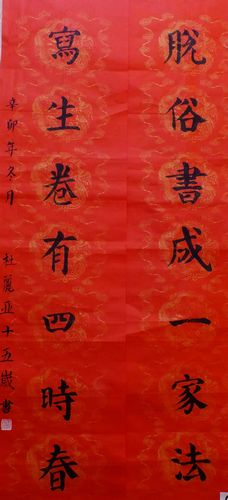 脱俗書成一家法
寫生卷有四時春
辛卯年冬月 杜麗亚十五歲書